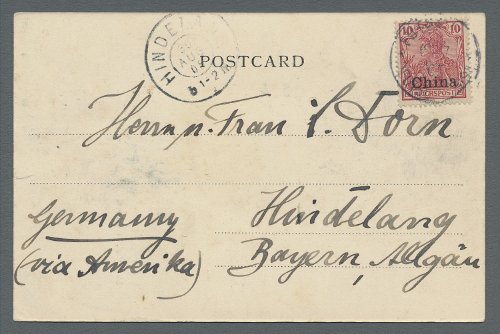 HINDELA
1-2N
10 10
REICHSPOST
China
POSTCARD
Herrn u. Frau E. Dorn
Hindelang
Bayern, Allgäu
Germany
(via Amerika)